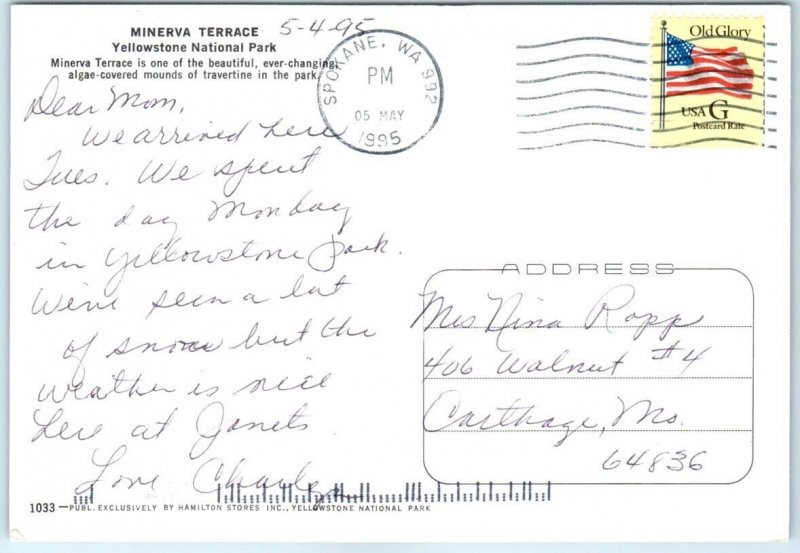 MINERVA TERRACE
Yellowstone National Park
Minerva Terrace is one of the beautiful, ever-changing,
algae-covered mounds of travertine in the park.
5-4-95
SPOKANE, WA 992
PM
05 MAY
1995
Old Glory
USA G
Postcard Rate
Dear Mom,
We arrived here
Tues. We spent
the day Monday
in Yellowstone Park.
We've seen a lot
of snow but the
weather is nice
here at Janets.
Love
ADDRESS
Mrs Nina Ropp
406 Walnut #4
Carthage, Mo.
64836
1033—PUBL. EXCLUSIVELY BY HAMILTON STORES INC., YELLOWSTONE NATIONAL PARK